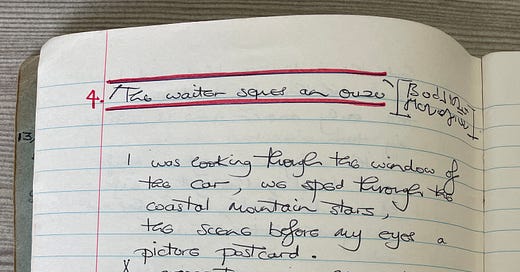 4. The waiter serves an ouzo
13,
I was looking through the window of
the car, we sped through the
coastal mountain stars,
the scene before my eyes a
picture postcard.
X